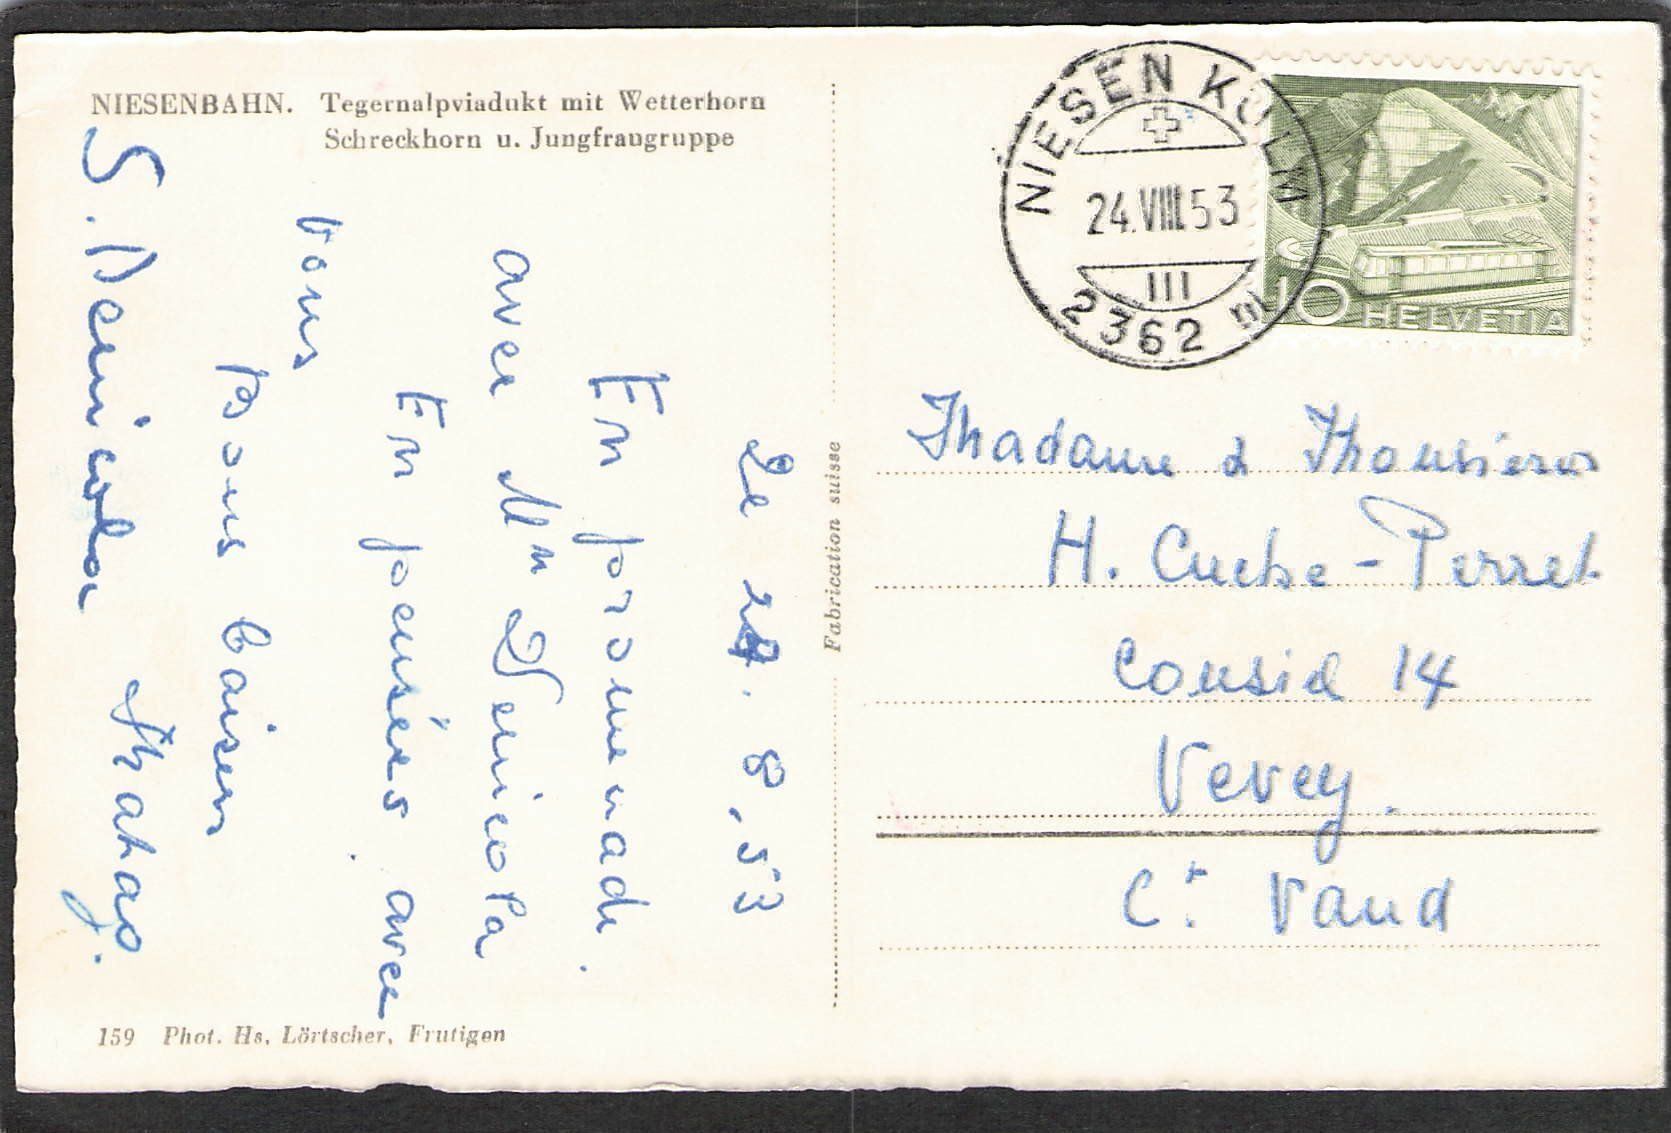 NIESENBAHN. Tegernalpviadukt mit Wetterhorn
Schreckhorn u. Jungfraugruppe
Le 24. 8. 53
En promenade
avec Mr Demicola
En pensées avec
vous
Bons baisers
S. Demicola
159 Phot. Hs. Lörtscher, Frutigen
Fabrication suisse
NIESEN KULM
24.VIII.53
III
2362 m
10 HELVETIA
Madame & Monsieur
H. Cuche-Perret
Consid 14
Vevey.
Ct. Vaud